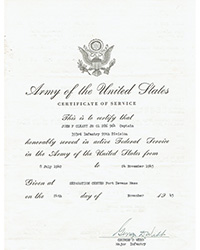 Army of the United States
CERTIFICATE OF SERVICE
This is to certify that
JOHN F Captain
Infantry Division
honorably served in active Federal Service
in the Army of the United States from
8 July to 24 November 1945
Given at SEPARATION CENTER Fort Devens Mass
on the day of November 1945
Major Infantry